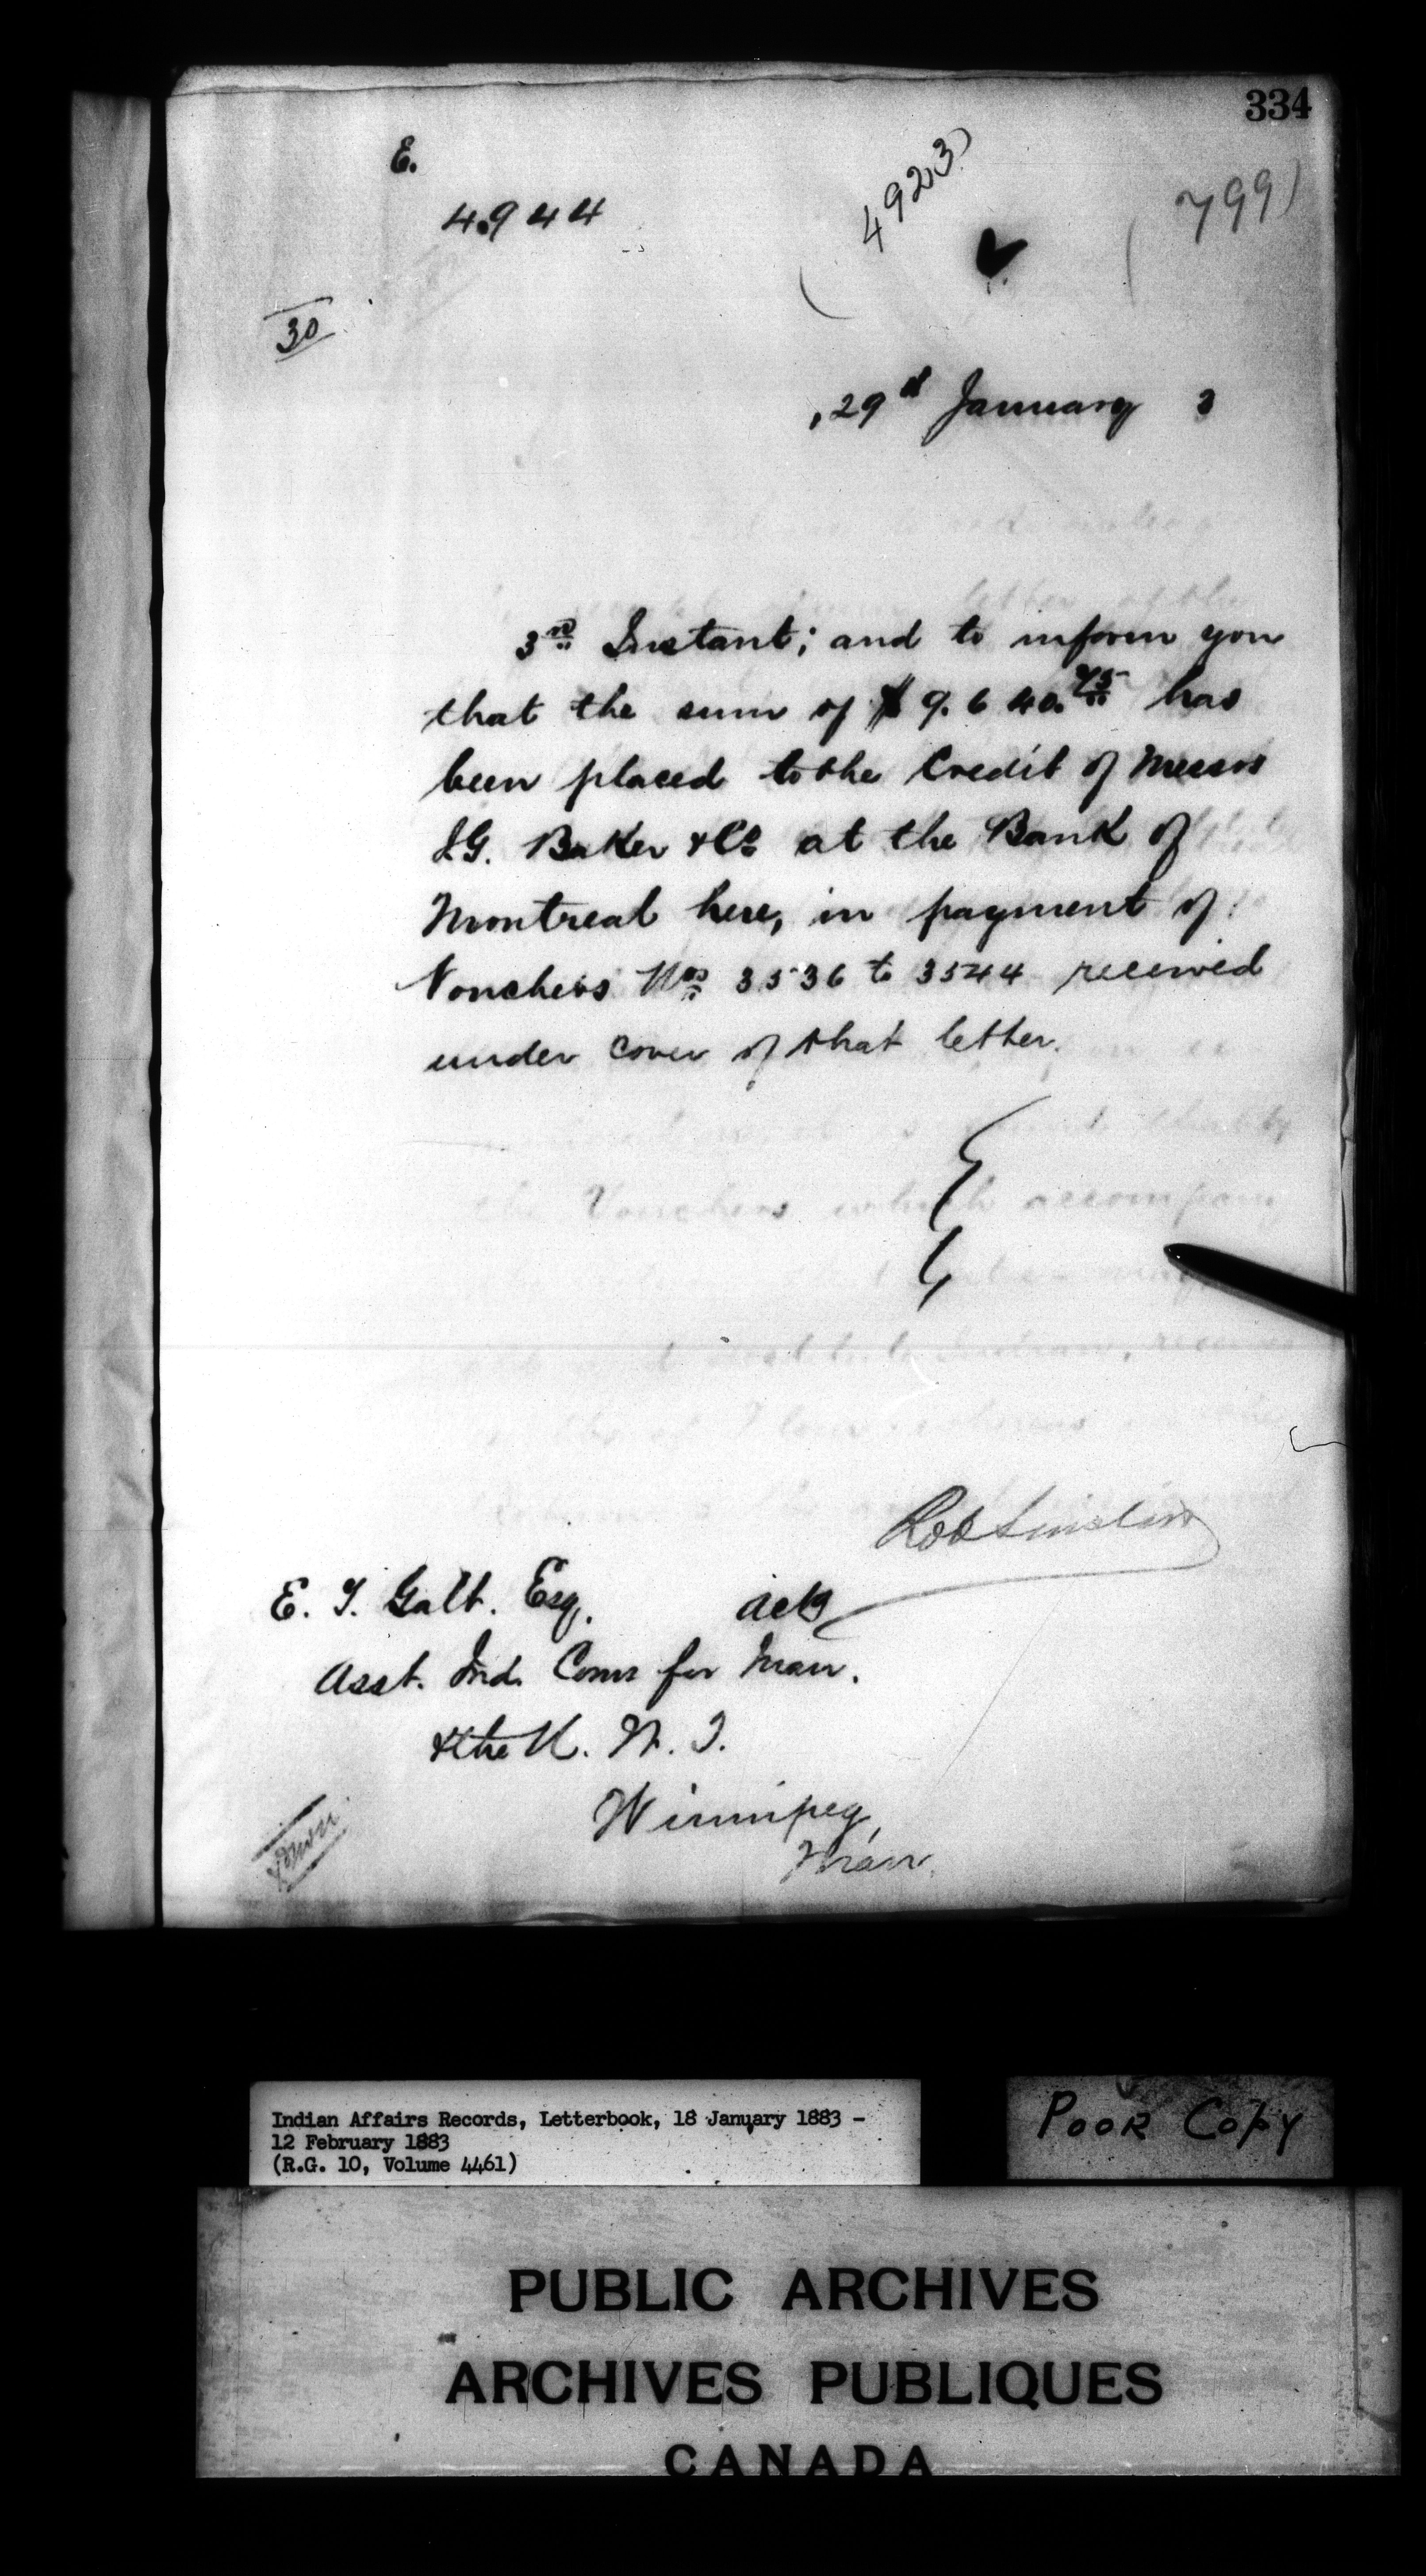 334
E.
4944
(4923)
(799)
30
29th January 3
3rd Instant; and to inform you
that the sum of $9.640.75 has
been placed to the Credit of Messrs
I.G. Baker & Co at the Bank of
Montreal here, in payment of
Vouchers Nos 3536 to 3544 received
under cover of that letter.
Rob Sinclair
E. T. Galt. Esq.
Asst. Ind. Comr for Man.
& the N. W. T.
Winnipeg,
Man.
Indian Affairs Records, Letterbook, 18 January 1883 -
12 February 1883
(R.G. 10, Volume 4461)
POOR COPY
PUBLIC ARCHIVES
ARCHIVES PUBLIQUES
CANADA